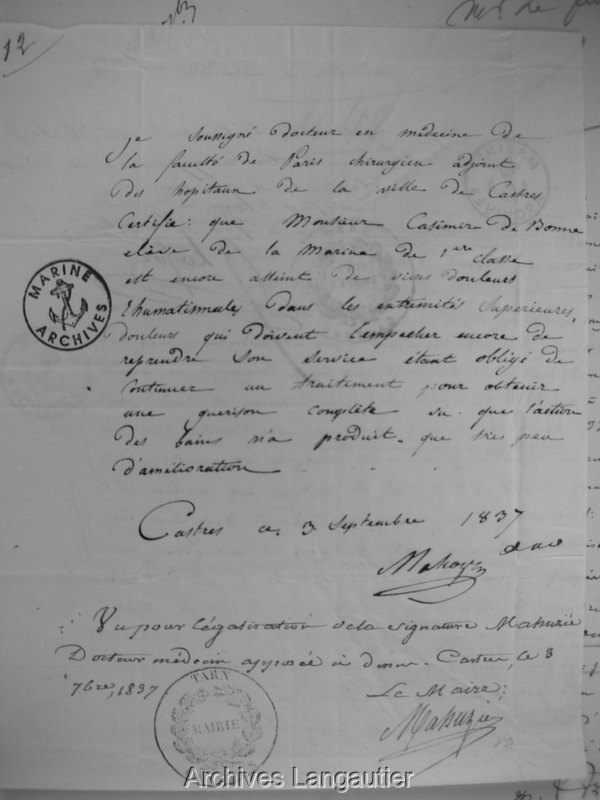 12
je soussigné docteur en médecine de
la faculté de Paris chirurgien adjoint
des hopitaux de la ville de Castres
Certifie : que Monsieur Casimir de Bonne
elève de la Marine de 1ere classe
est encore atteint de vives douleurs
Rhumatismales dans les extremités superieures,
douleurs qui doivent l'empecher encore de
reprendre son service étant obligé de
Continuer un traitement pour obtenir
une guerison complète vu que l'action
des bains n'a produit que très peu
d'amélioration
MARINE
ARCHIVES
Castres ce 3 Septembre 1837
Mahuzié
Vu pour légalisation de la signature Mahuzié
Docteur médecin apposée à Castres, le 3
7bre, 1837.
Le Maire,
Mahuzié
TARN
MAIRIE
Archives Langautier